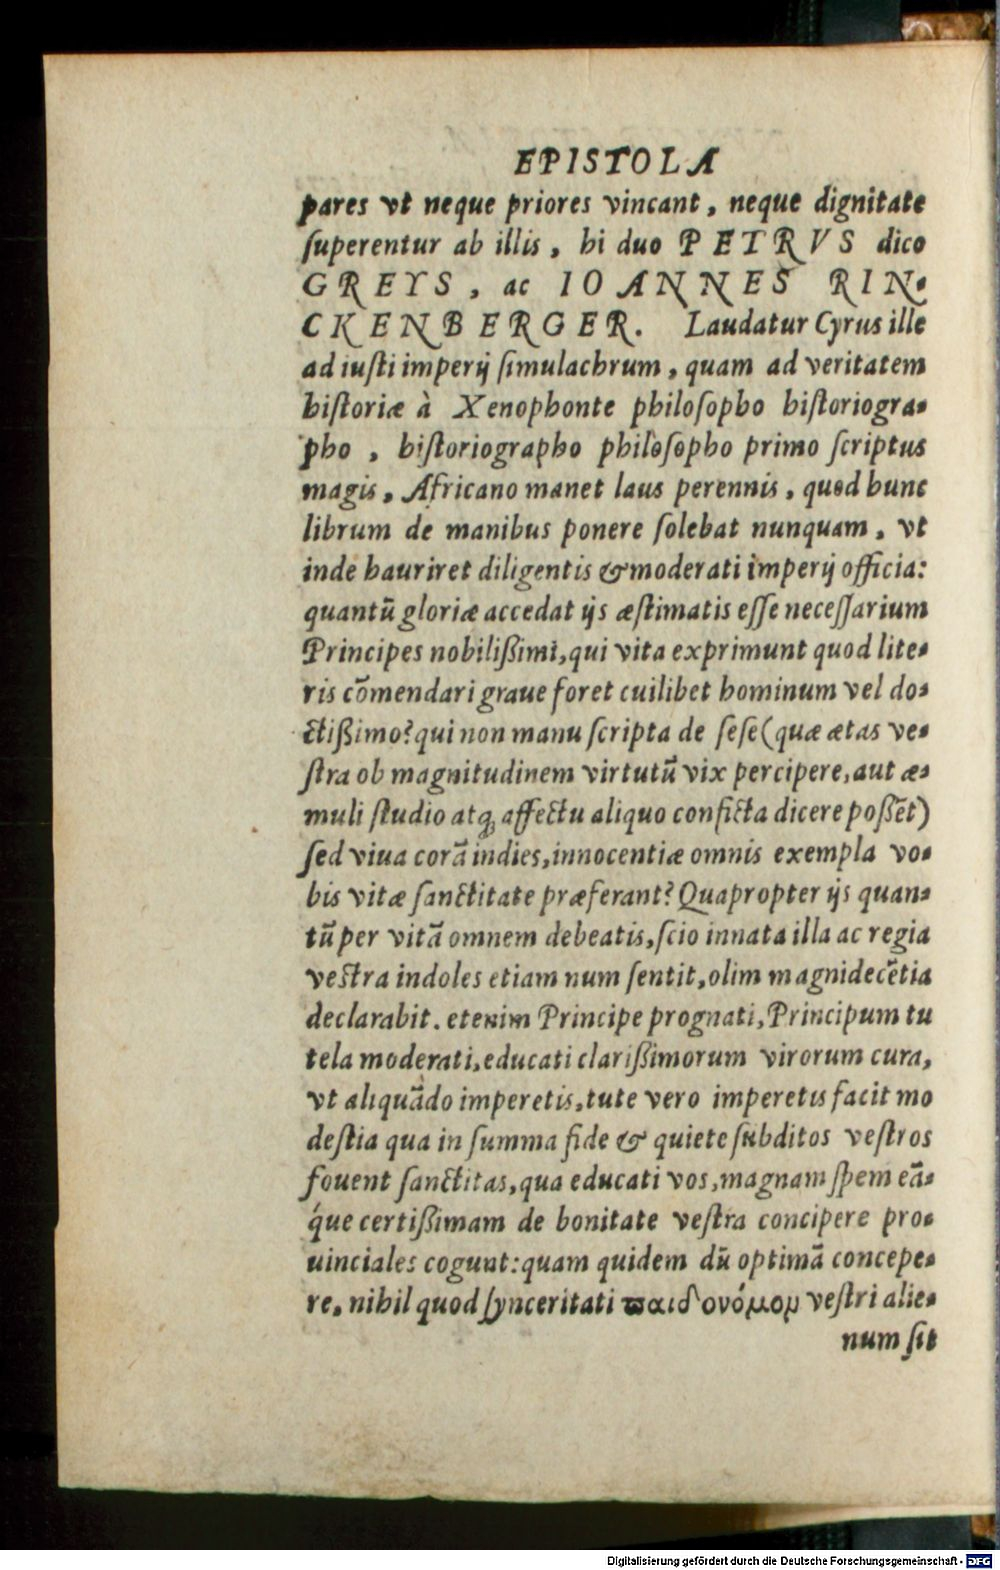 EPISTOLA
pares vt neque priores vincant, neque dignitate
ſuperentur ab illis, hi duo PETRVS dico
GREYS, ac IOANNES RIN-
CKENBERGER. Laudatur Cyrus ille
ad iuſti imperij ſimulachrum, quam ad veritatem
hiſtoriæ à Xenophonte philoſopho hiſtoriogra-
pho, hiſtoriographo philoſopho primo ſcriptus
magis, Africano manet laus perennis, quod hunc
librum de manibus ponere ſolebat nunquam, vt
inde hauriret diligentis & moderati imperij officia:
quantũ gloriæ accedat ijs æſtimatis eſſe neceſſarium
Principes nobilißimi, qui vita exprimunt quod lite-
ris cõmendari graue foret cuilibet hominum vel do-
ctißimo? qui non manu ſcripta de ſeſe (quæ ætas ve-
ſtra ob magnitudinem virtutũ vix percipere, aut æ-
muli ſtudio atq; affectu aliquo conficta dicere poßẽt)
ſed viua corã indies, innocentiæ omnis exempla vo-
bis vitæ ſanctitate præferant? Quapropter ijs quan-
tũper vitã omnem debeatis, ſcio innata illa ac regia
veſtra indoles etiam num ſentit, olim magnidecẽtia
declarabit. etenim Principe prognati, Principum tu
tela moderati, educati clarißimorum virorum cura,
vt aliquãdo imperetis, tute vero imperetis facit mo
deſtia qua in ſumma fide & quiete ſubditos veſtros
fouent ſanctitas, qua educati vos, magnam ſpem eã-
q́ue certißimam de bonitate veſtra concipere pro-
uinciales cogunt: quam quidem dũ optimã concepe-
re, nihil quod ſynceritati ϖαιδονόμομ veſtri alie-
num ſit
Digitalisierung gefördert durch die Deutsche Forschungsgemeinschaft - DFG